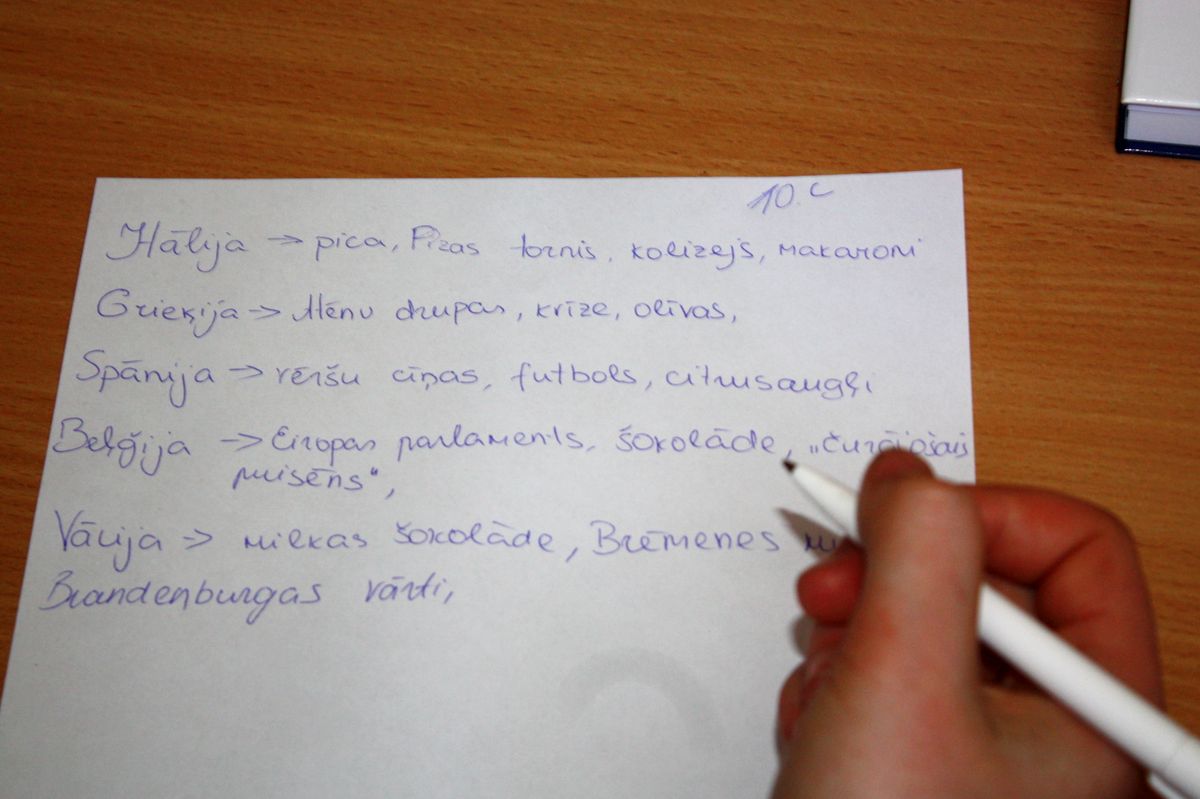 10.c
Itālija → pica, Pizas tornis, kolizejs, makaroni
Grieķija → Atēnu drupas, krīze, olīvas,
Spānija → vēršu cīņas, futbols, citrusaugļi
Beļģija → Eiropas parlaments, šokolāde, „čurājošais
puisēns",
Vācija → milkas šokolāde, Brēmenes
Brandenburgas vārti,